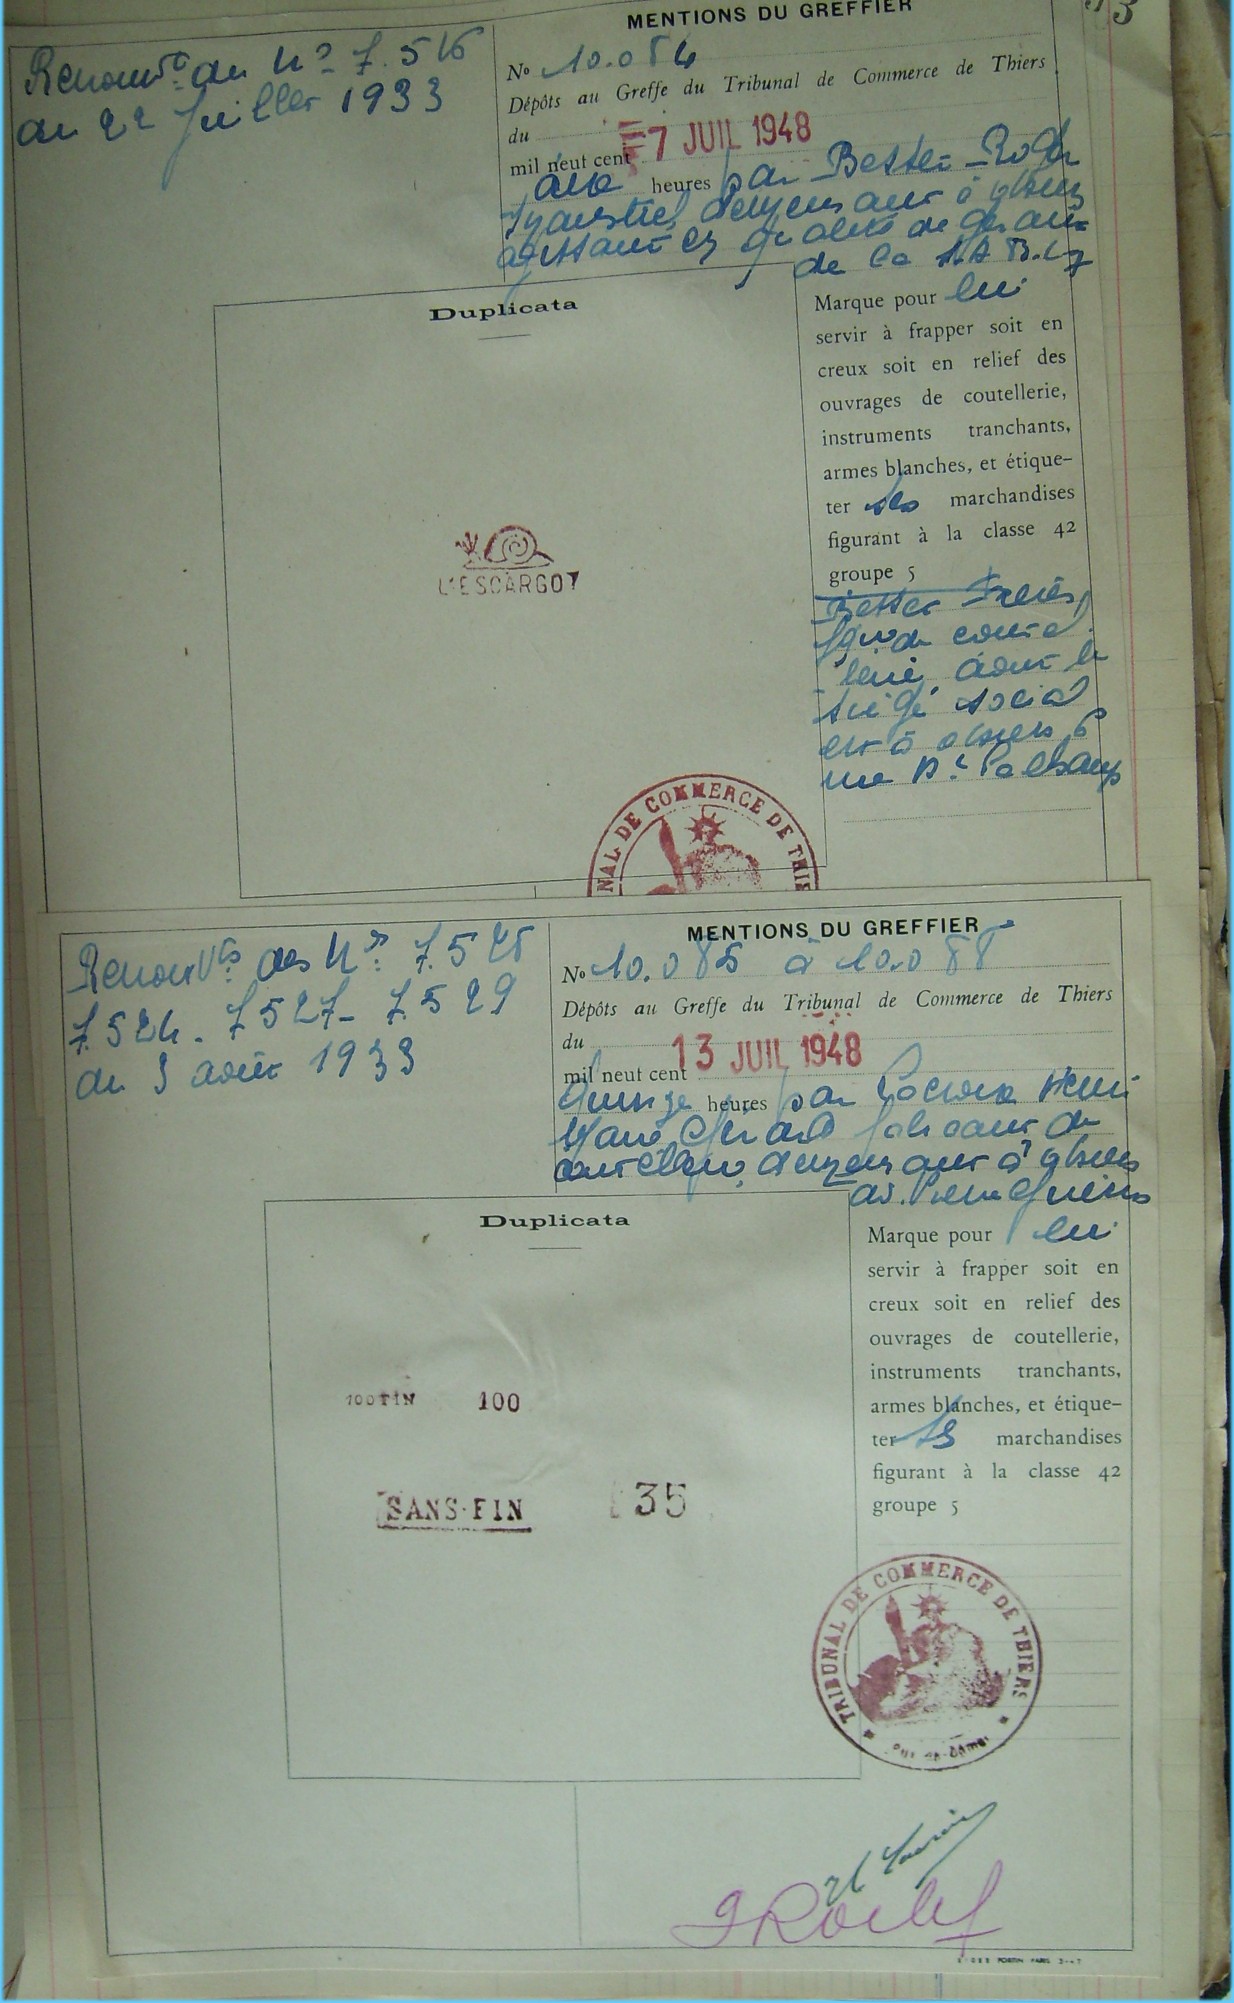 MENTIONS DU GREFFIER
Renouvt du N° 7.516
du 22 Juillet 1933
No 10.084
Dépôts au Greffe du Tribunal de Commerce de Thiers
du
7 JUIL 1948
mil neuf cent
heures par Besset Roger
Industriel, demeurant à Thiers
agissant en qualité de gérant
de la
Duplicata
L'ESCARGOT
Marque pour lui
servir à frapper soit en
creux soit en relief des
ouvrages de coutellerie,
instruments tranchants,
armes blanches, et étique-
ter ses marchandises
figurant à la classe 42
groupe 5
Besset Frères,
de coutel
lerie, dont le
siège social
est à Thiers, 6
rue
NAL DE COMMERCE DE THIE
MENTIONS DU GREFFIER
Renouvts des Nos 7.525
7.524 - 7.527 - 7.529
du 3 août 1933
No 10.085 à 10.088
Dépôts au Greffe du Tribunal de Commerce de Thiers
du
13 JUIL 1948
mil neuf cent
quinze heures par Henri
Marie Gérard fabricant de
coutellerie, demeurant à Thiers
av. Pierre Guérin
Duplicata
100 FIN 100
SANS-FIN 35
Marque pour lui
servir à frapper soit en
creux soit en relief des
ouvrages de coutellerie,
instruments tranchants,
armes blanches, et étique-
ter ses marchandises
figurant à la classe 42
groupe 5
TRIBUNAL DE COMMERCE DE THIERS
PUY-DE-DÔME